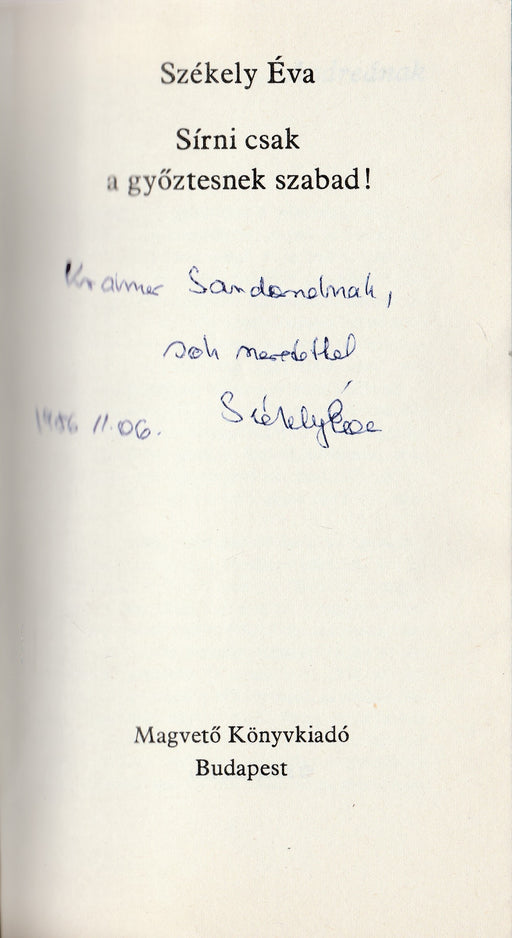 Székely Éva
Sírni csak
a győztesnek szabad!
Kramer Sandornak,
sok szeretettel
1986 11.06. Székely Éva
Magvető Könyvkiadó
Budapest